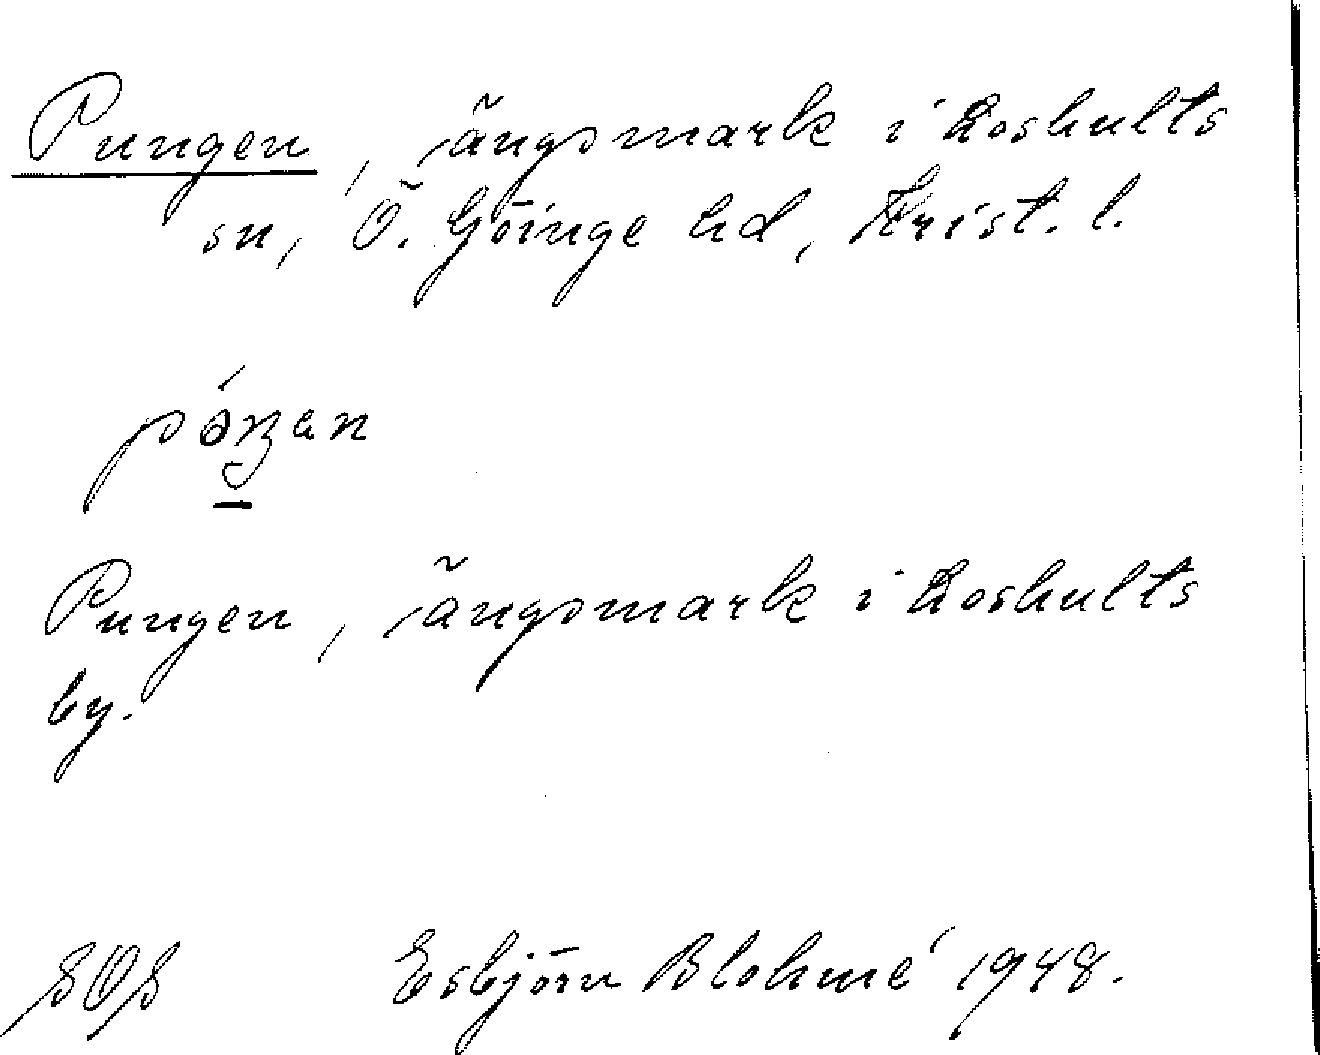 Pungen, ängsmark i Loshults
sn, Ö. Göinge hd, Krist. l.
Pungen, ängsmark i Loshults
by.
SOS Esbjörn Blohmé 1948.